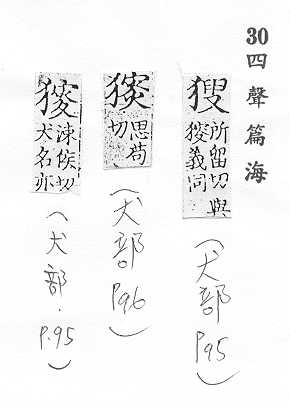 30四聲篇海
獀
所留切與
義同
(犬部 P95)
思苟
切
(犬部 P96)
涑候切
犬名亦
(犬部. P.95)